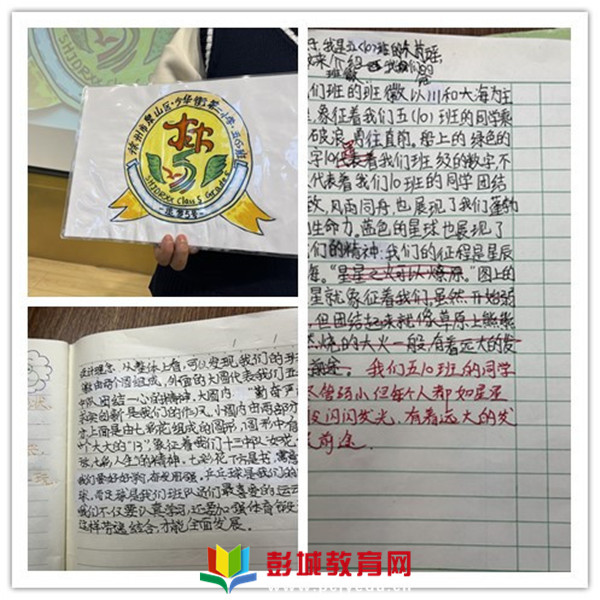 徐州市泉山区少华街第二小学
SHJDRXX Class 5 Grade 5
设计理念：从整体上看，可以发现我们的班
徽由两个圆组成，外面的大圆代表我们五
中队团结一心的精神，大圆内
求实创新是我们的作风，小圆内由两部分
分上面是由七彩花组成的圆形，圆形中有
个大大的"13"，象征着我们十三中队
七彩花下方是书，寓意
我们要好好学习，奋发图强，乒乓球是我们的
球，而足球是我们班队员们最喜爱的运动
我们不仅要认真学习，还要加强体育锻
这样劳逸结合，才能全面发展。
我是五(10)班的
来介绍
班徽
们班的班徽以川和大海为主
象征着我们五(10)班的同学乘
破浪，勇往直前。船上的绿色的
字10代表着我们班级的数字，不
代表着我们10班的同学团结
风雨同舟，也展现了我们蓬勃
生命力，蓝色的星球也展现了
们的精神：我们的征程是星辰
海。"星星之火可以燎原"图上的
星就象征着我们，虽然开始弱
但团结起来就像草原上熊熊
燃烧的大火一般，有着远大的发
展前途。我们五10班的同学
尽管弱小但每个人都如星星
闪闪发光，有着远大的发
展前途。
彭城教育网
www.pcjyedu.cn